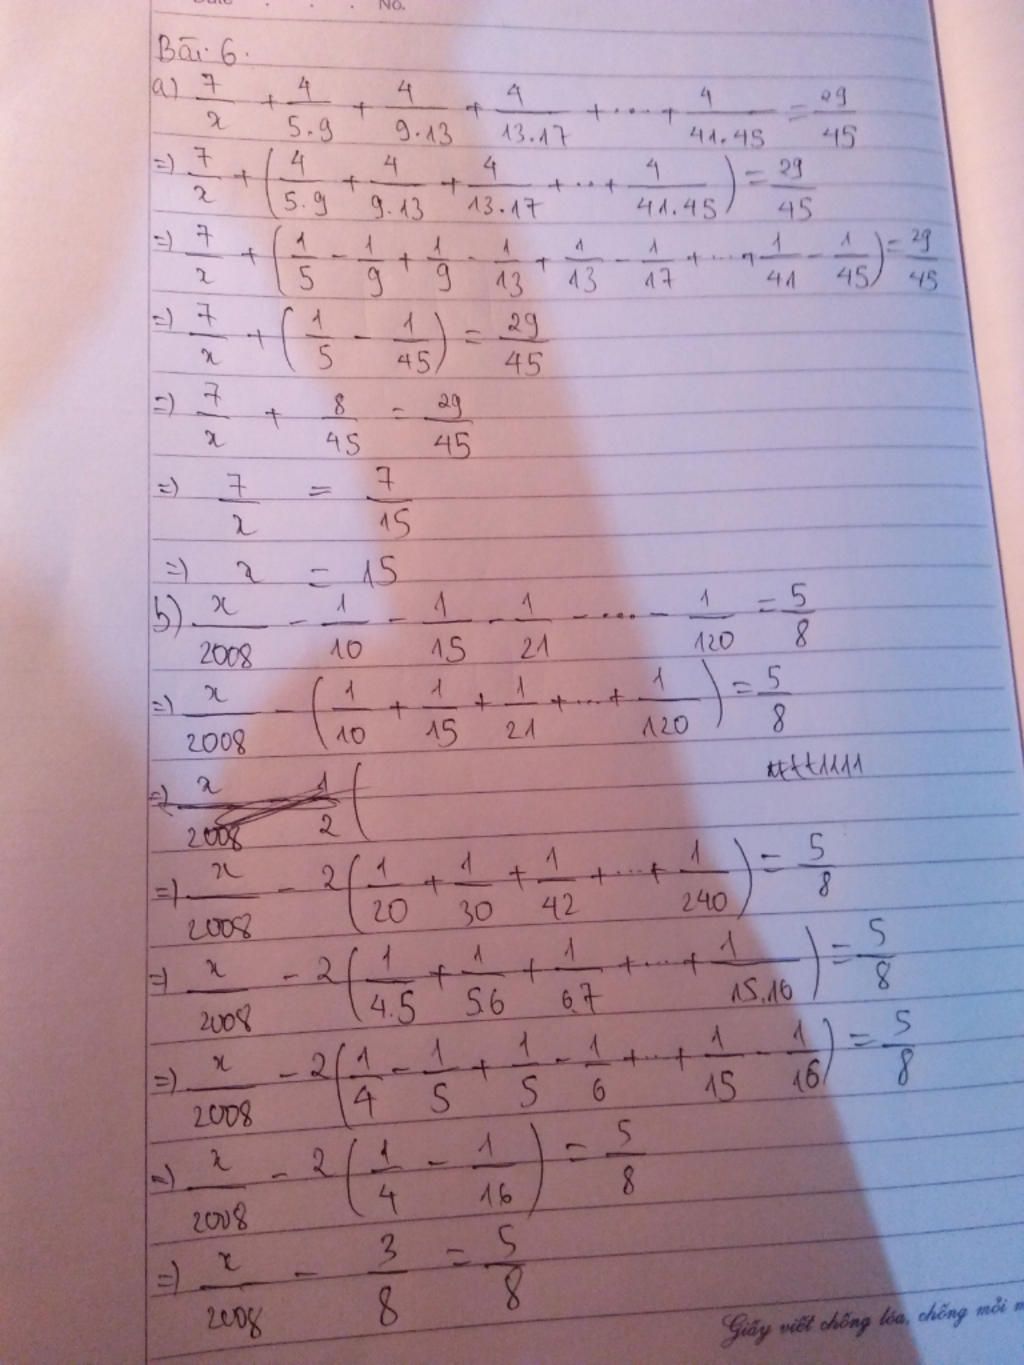 No.
Bài 6.
a) 7/x + 4/5.9 + 4/9.13 + 4/13.17 + ... + 4/41.45 = 29/45
=) 7/x + (4/5.9 + 4/9.13 + 4/13.17 + ... + 4/41.45) = 29/45
=) 7/x + (1/5 - 1/9 + 1/9 - 1/13 + 1/13 - 1/17 + ... + 1/41 - 1/45) = 29/45
=) 7/x + (1/5 - 1/45) = 29/45
=) 7/x + 8/45 = 29/45
=) 7/x = 7/15
=) x = 15
b) x/2008 - 1/10 - 1/15 - 1/21 - ... - 1/120 = 5/8
=) x/2008 - (1/10 + 1/15 + 1/21 + ... + 1/120) = 5/8
=) x/2008 1/2 (
=) x/2008 - 2(1/20 + 1/30 + 1/42 + ... + 1/240) = 5/8
=) x/2008 - 2(1/4.5 + 1/5.6 + 1/6.7 + ... + 1/15.16) = 5/8
=) x/2008 - 2(1/4 - 1/5 + 1/5 - 1/6 + ... + 1/15 - 1/16) = 5/8
=) x/2008 - 2(1/4 - 1/16) = 5/8
=) x/2008 - 3/8 = 5/8
Giấy viết chống lóa, chống mỏi